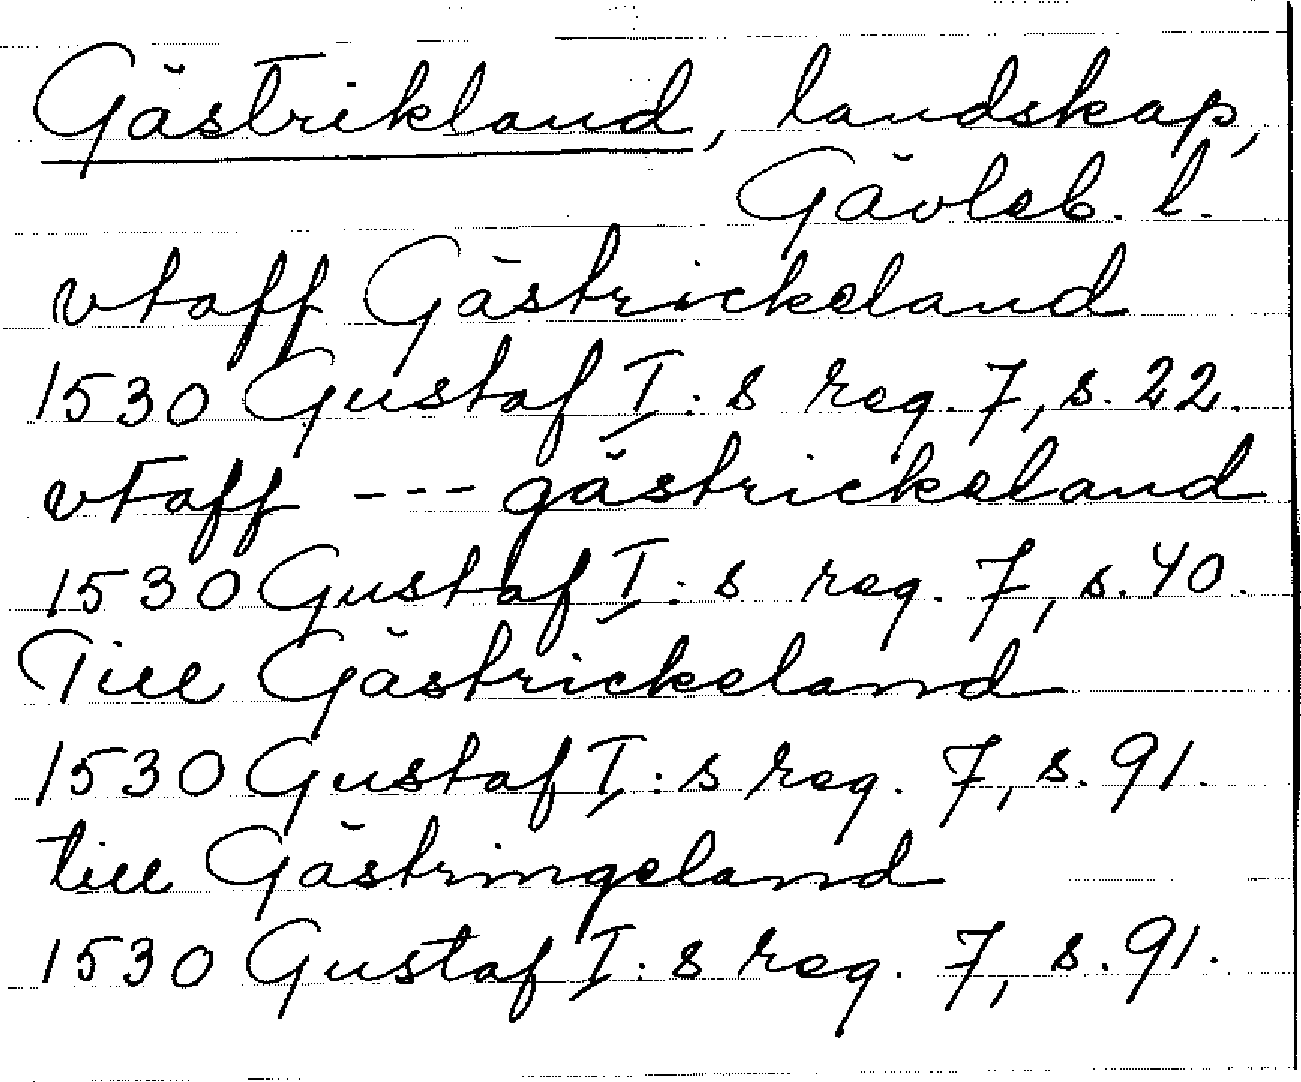 Gästrikland, landskap,
Gävleb. l.
vtaff Gästrickeland
1530 Gustaf I: s reg. 7, s. 22.
vtaff --- gästrickeland
1530 Gustaf I: s reg. 7, s. 40.
Till Gästrickeland
1530 Gustaf I: s reg. 7, s. 91.
till Gästringeland
1530 Gustaf I: s reg. 7, s. 91.